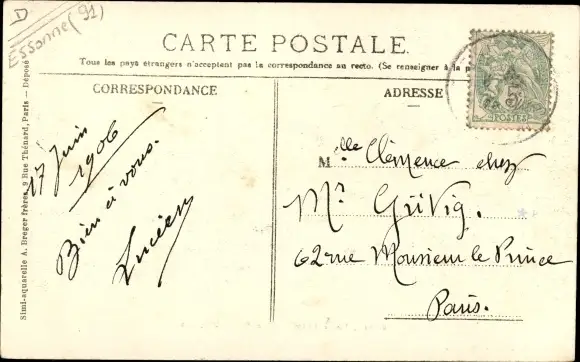 D
Essonne (91)
CARTE POSTALE.
Tous les pays étrangers n'acceptent pas la correspondance au recto. (Se renseigner à la p
CORRESPONDANCE
ADRESSE
17 Juin
1906
Bien à vous.
Lucien
Mlle Clémence chez
Mr Grivig.
62 rue Monsieur le Prince
Paris.
POSTES
Simi-aquarelle A. Breger frères, 9 Rue Thénard, Paris — Déposé